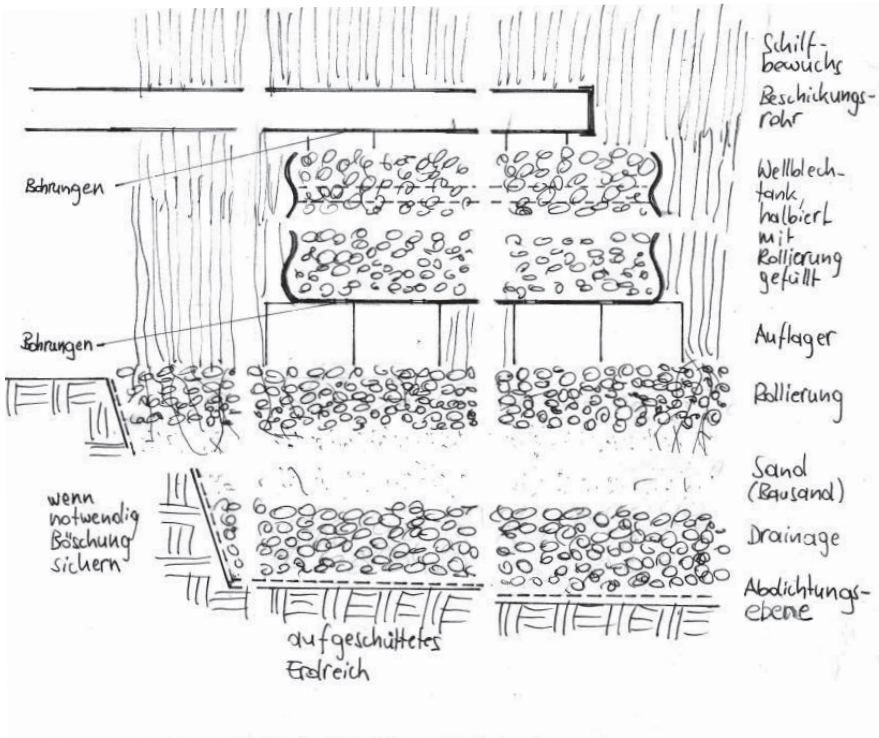 Schilf-
bewuchs
Beschickungs-
rohr
Bohrungen
Wellblech-
tank,
halbiert
mit
Rollierung
gefüllt
Bohrungen
Auflager
Rollierung
Sand
(Bausand)
wenn
notwendig
Böschung
sichern
Drainage
Abdichtungs-
ebene
aufgeschüttetes
Erdreich